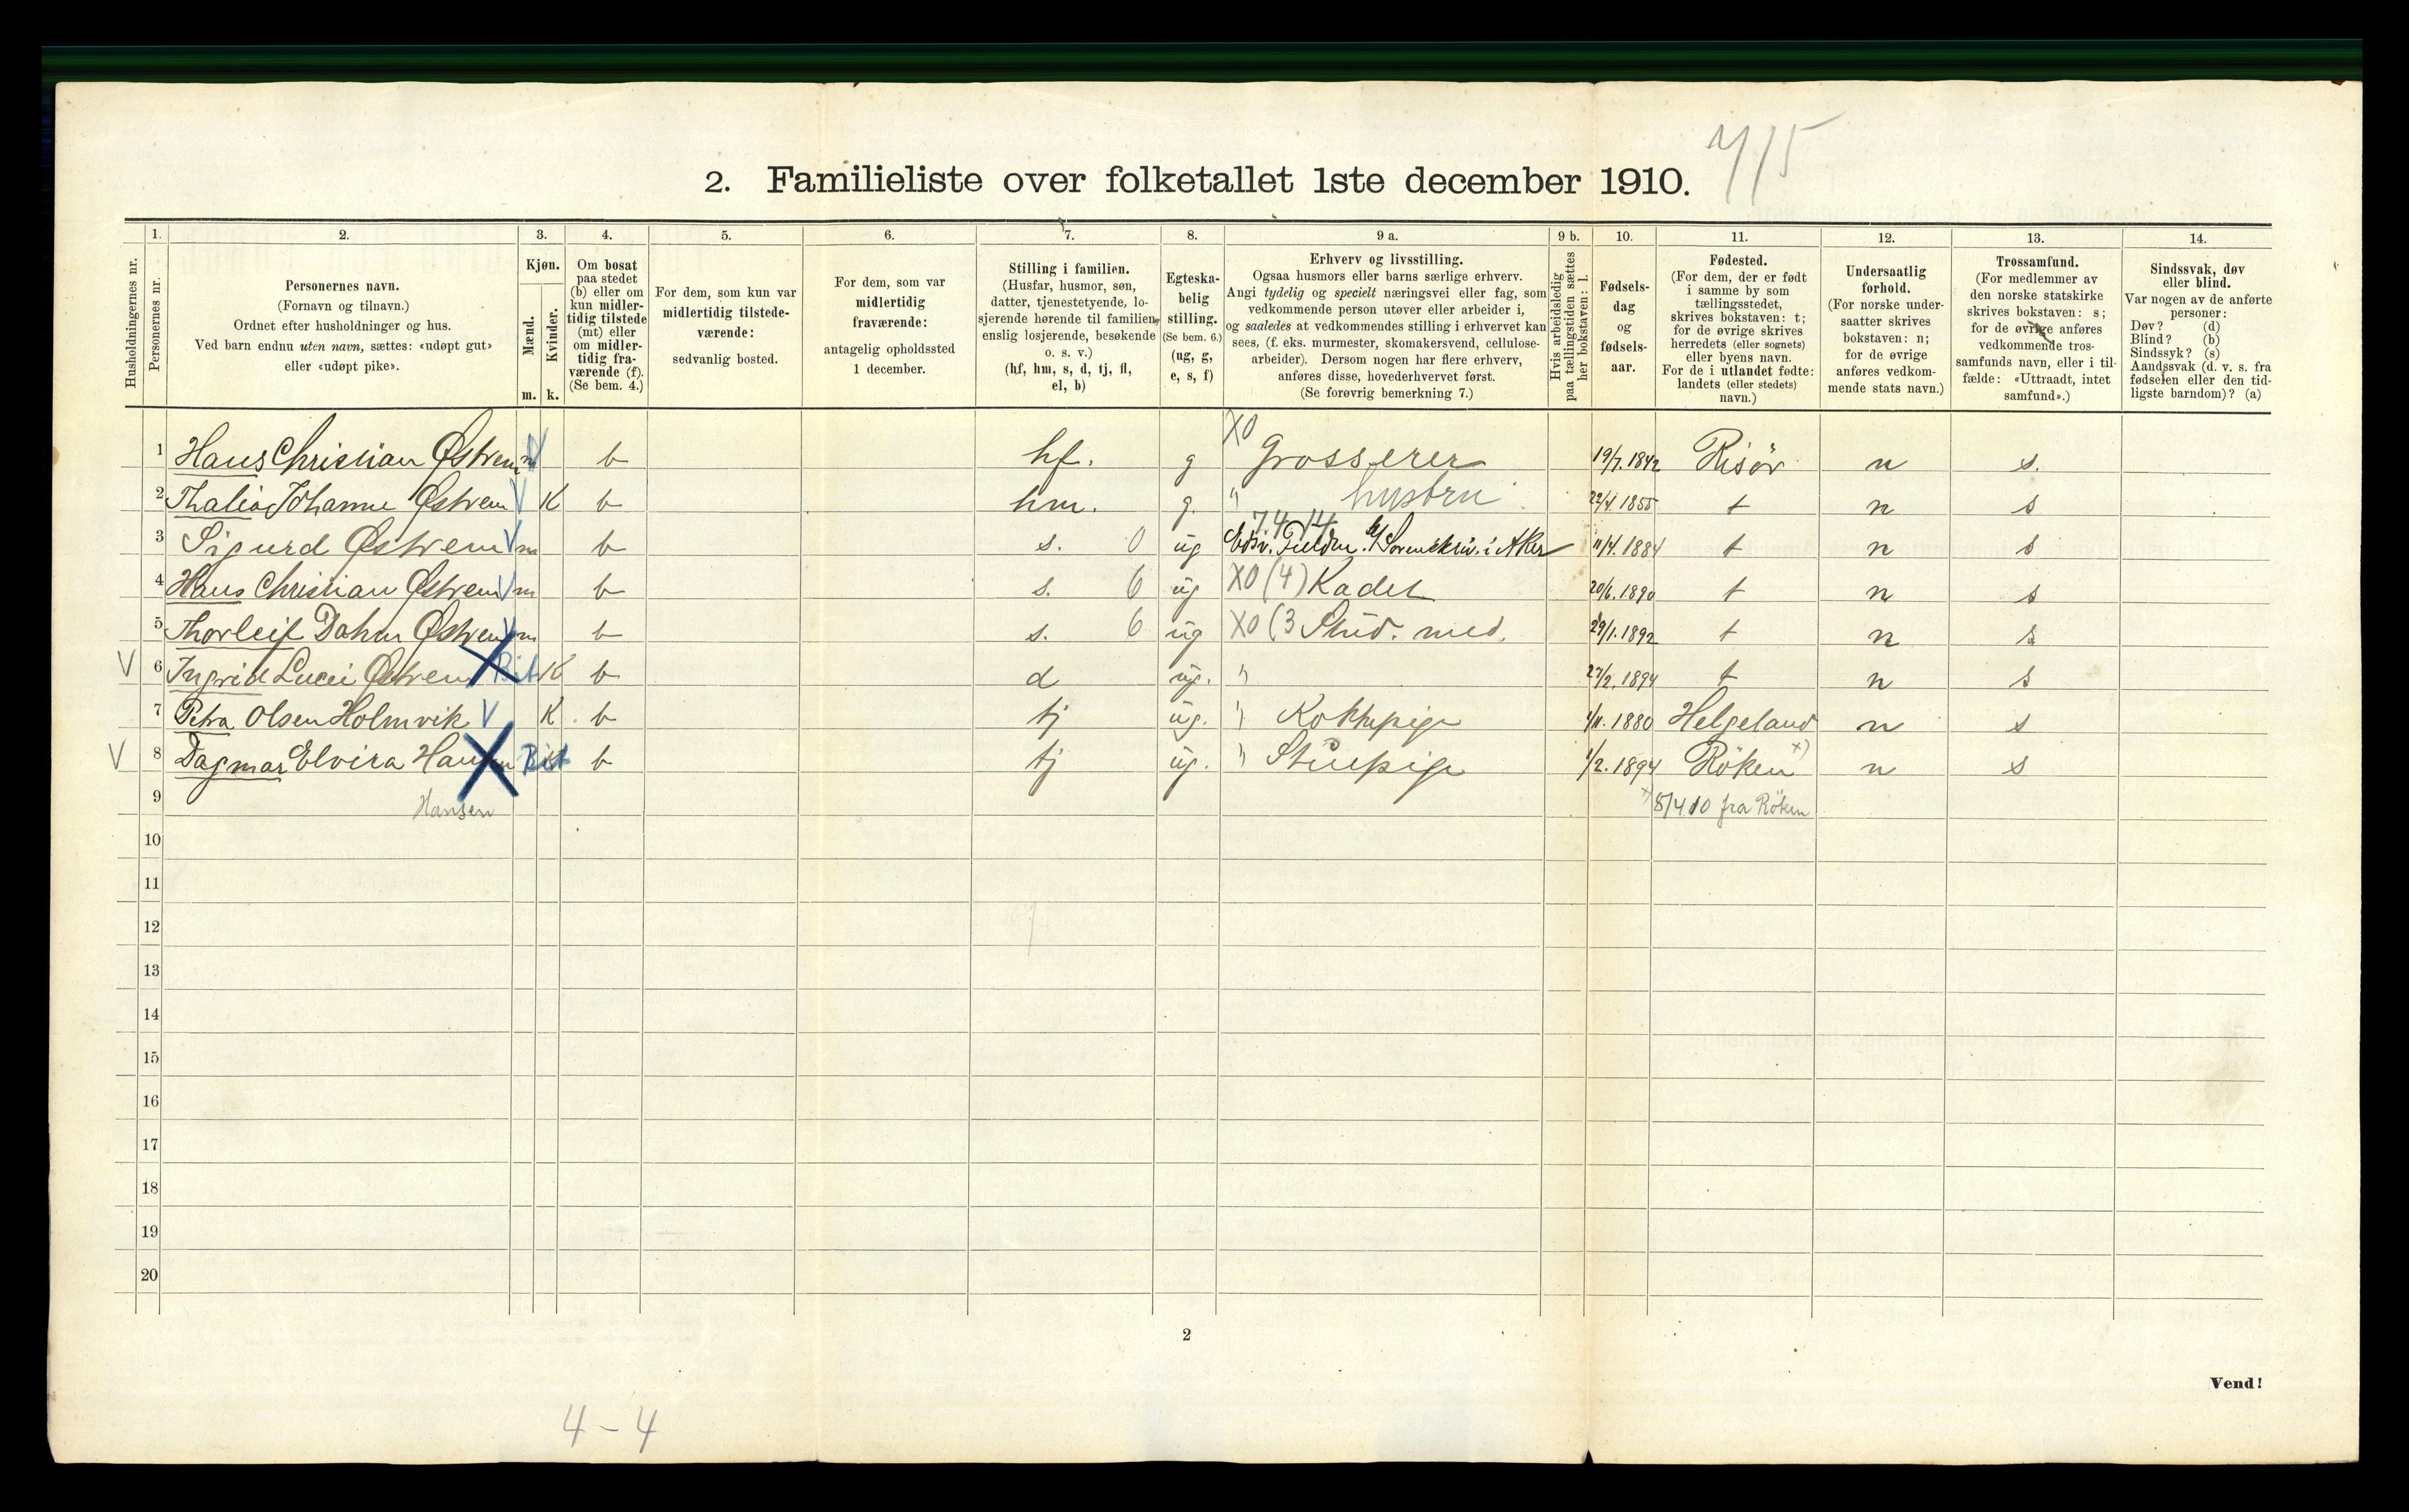 7/15
2. Familieliste over folketallet 1ste december 1910.
Husholdningernes nr.
1.
Personernes nr.
2.
Personernes navn.
(Fornavn og tilnavn.)
Ordnet efter husholdninger og hus.
Ved barn endnu uten navn, sættes: «udøpt gut»
eller «udøpt pike».
3.
Kjøn.
Mænd.
Kvinder.
m. k.
4.
Om bosat
paa stedet
(b) eller om
kun midler-
tidig tilstede
(mt) eller
om midler-
tidig fra-
værende (f).
(Se bem. 4.)
5.
For dem, som kun var
midlertidig tilstede-
værende:
sedvanlig bosted.
6.
For dem, som var
midlertidig
fraværende:
antagelig opholdssted
1 december.
7.
Stilling i familien.
(Husfar, husmor, søn,
datter, tjenestetyende, lo-
sjerende hørende til familien,
enslig losjerende, besøkende
o. s. v.)
(hf, hm, s, d, tj, fl,
el, b)
8.
Egteska-
belig
stilling.
(Se bem. 6.)
(ug, g,
e, s, f)
9 a.
Erhverv og livsstilling.
Ogsaa husmors eller barns særlige erhverv.
Angi tydelig og specielt næringsvei eller fag, som
vedkommende person utøver eller arbeider i,
og saaledes at vedkommendes stilling i erhvervet kan
sees, (f. eks. murmester, skomakersvend, cellulose-
arbeider). Dersom nogen har flere erhverv,
anføres disse, hovederhvervet først.
(Se forøvrig bemerkning 7.)
9 b.
Hvis arbeidsledig
paa tællingstiden sættes
her bokstaven: l.
10.
Fødsels-
dag
og
fødsels-
aar.
11.
Fødested.
(For dem, der er født
i samme by som
tællingsstedet,
skrives bokstaven: t;
for de øvrige skrives
herredets (eller sognets)
eller byens navn.
For de i utlandet fødte:
landets (eller stedets)
navn.)
12.
Undersaatlig
forhold.
(For norske under-
saatter skrives
bokstaven: n;
for de øvrige
anføres vedkom-
mende stats navn.)
13.
Trossamfund.
(For medlemmer av
den norske statskirke
skrives bokstaven: s;
for de øvrige anføres
vedkommende tros-
samfunds navn, eller i til-
fælde: «Uttraadt, intet
samfund».)
14.
Sindssvak, døv
eller blind.
Var nogen av de anførte
personer:
Døv? (d)
Blind? (b)
Sindssyk? (s)
Aandssvak (d. v. s. fra
fødselen eller den tid-
ligste barndom)? (a)
1 Hans Christian Østrem V m b hf. g X0 Grosserer 19/7. 1842 Risör n s.
2 Thalia Johanne Østrem V K b hm. g. " hustru 22/4. 1855 t n s
3 Sigurd Østrem V m b s. 0 ug 74 14 Edsv. Fuldm. h/ Sorenskriv. i Aker 11/4. 1884 t n s
4 Hans Christian Østrem V m b s. 6 ug X0 (4) Kadet 20/6. 1890 t n s
5 Thorleif Dahm Østrem V m b s. 6 ug X0 (3 Stud. med. 29/1. 1892 t n s
V 6 Ingrid Lucie Østrem X Bit K b d ug. " 27/2. 1894 t n s
7 Petra Olsen Holmvik V K b tj ug. " Kokkepige 1/11. 1880 Helgeland n s
V 8 Dagmar Elvira Hansen X Bit K b tj ug. " Stuepige 1/2. 1894 Röken x) n s
9 Hansen x) 8/4 10 fra Röken
10
11
12
13
14
15
16
17
18
19
20
2
Vend!
4 - 4